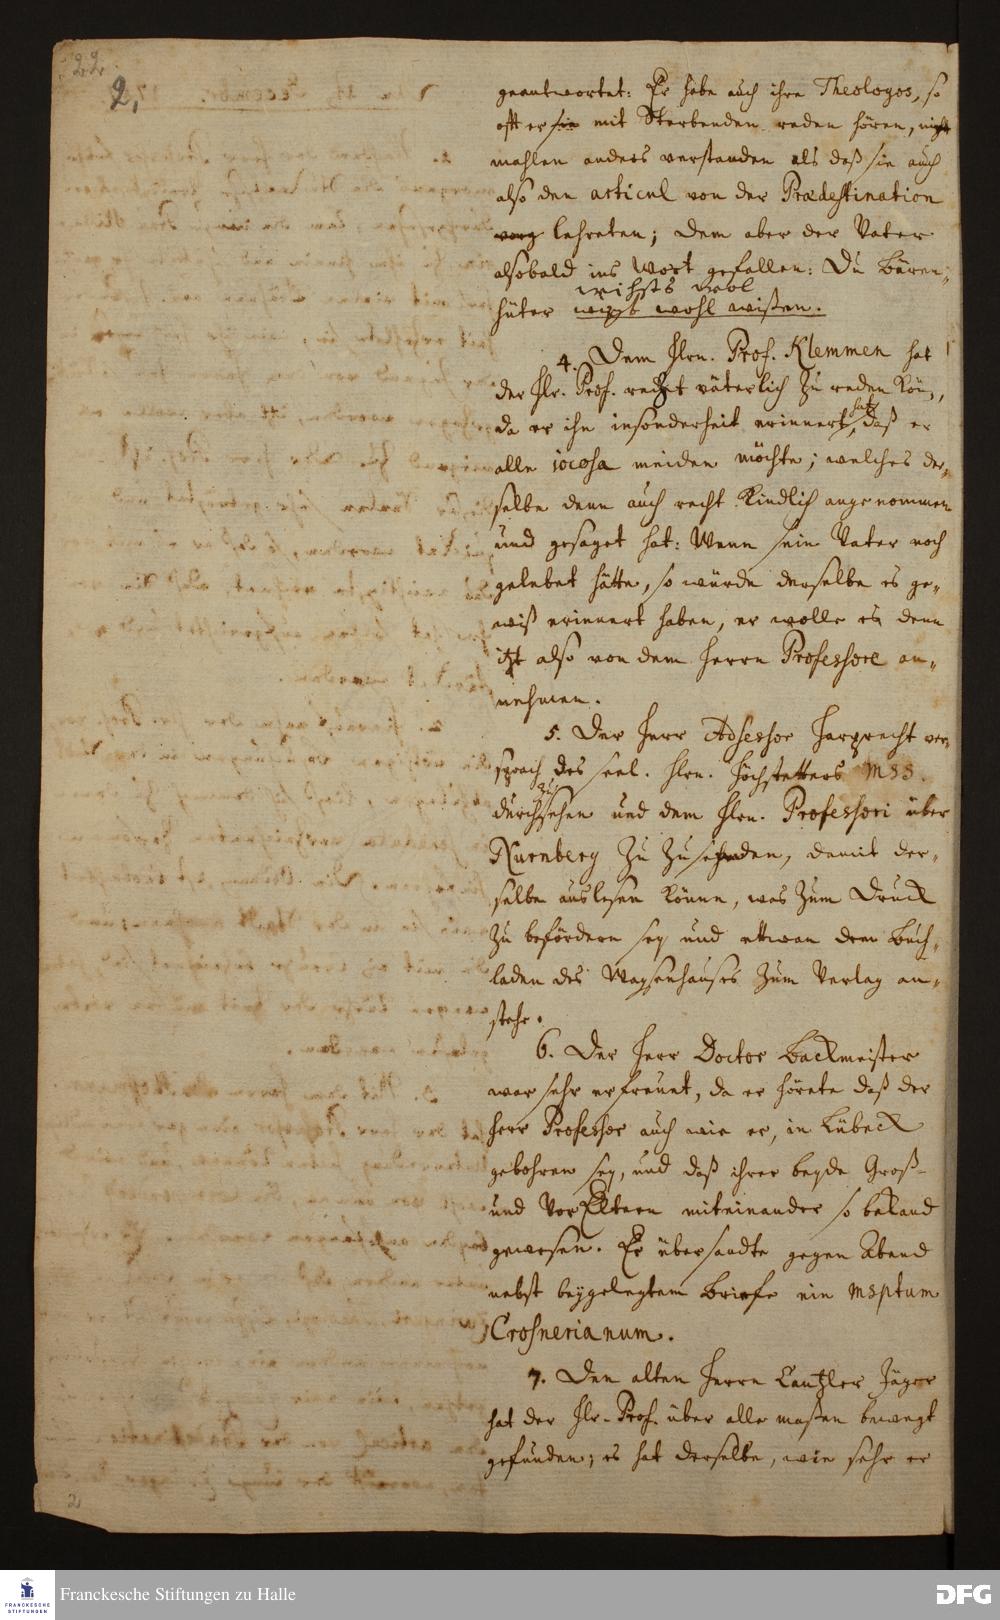 22
2,
geantwortet: Er habe auch ihre Theologos, so
offt er sie mit Sterbenden reden hören, nie¬
mahlen anders verstanden als daß sie auch
also den articul von der Prædestination
lehreten; dem aber der Vater
alsobald ins Wort gefallen: Du Bären¬
wol
hüter wohl wißen.
4. Dem Hrn. Prof. Klemmen hat
der Hr. Prof. recht väterlich zu reden kön̄en,
hat
da er ihn insonderheit erinnert, daß er
alle iocosa meiden möchte; welches der¬
selbe denn auch recht kindlich angenommen
und gesaget hat: Wenn sein Vater noch
gelebet hätte, so würde derselbe es ge¬
wiß erinnert haben, er wolle es denn
itzt also von dem Herrn Professore an¬
nehmen.
5. Der Herr Adsessor Harpprecht ver¬
sprach des seel. Hrn. Höchstetters MSS.
zu
durchsehen und dem Hrn. Professori über
Nürnberg zu zusenden, damit der¬
selbe auslesen könne, was zum Druck
zu befördern sey und etwan dem Buch¬
laden des Waysenhauses zum Verlag an¬
stehe.
6. Der Herr Doctor Backmeister
war sehr erfreuet, da er hörete daß der
Herr Professor auch wie er, in Lübeck
gebohren sey, und daß ihrer beyde Groß-
und VorEltern miteinander so bekand
gewesen. Er übersandte gegen Abend
nebst beygelegtem Briefe ein Msptum
Crosnerianum.
7. Den alten Herrn Cantzler Jäger
hat der Hr. Prof. über alle maßen bewegt
gefunden; es hat derselbe, wie sehr er
2
FRANCKESCHE
STIFTUNGEN
Franckesche Stiftungen zu Halle
DFG